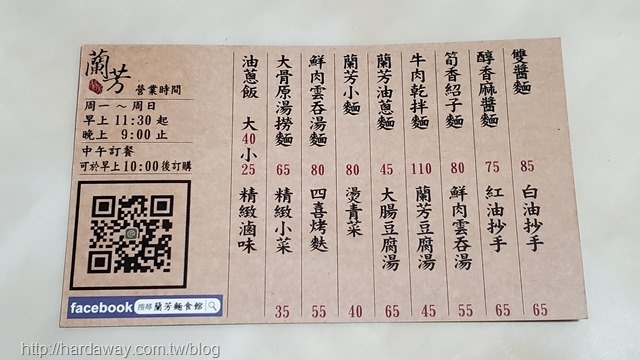 蘭芳
營業時間
周一～周日
早上 11:30 起
晚上 9:00 止
中午訂餐
可於早上10:00後訂購
facebook 搜尋 蘭芳麵食館
雙醬麵 85
醇香麻醬麵 75
筍香紹子麵 80
牛肉乾拌麵 110
蘭芳油蔥麵 45
蘭芳小麵 80
鮮肉雲吞湯麵 80
大骨原湯撈麵 65
油蔥飯 大40 小25
白油抄手 65
紅油抄手 65
鮮肉雲吞湯 55
蘭芳豆腐湯 45
大腸豆腐湯 65
燙青菜 40
四喜烤麩 55
精緻小菜 35
精緻滷味
http://hardaway.com.tw/blog